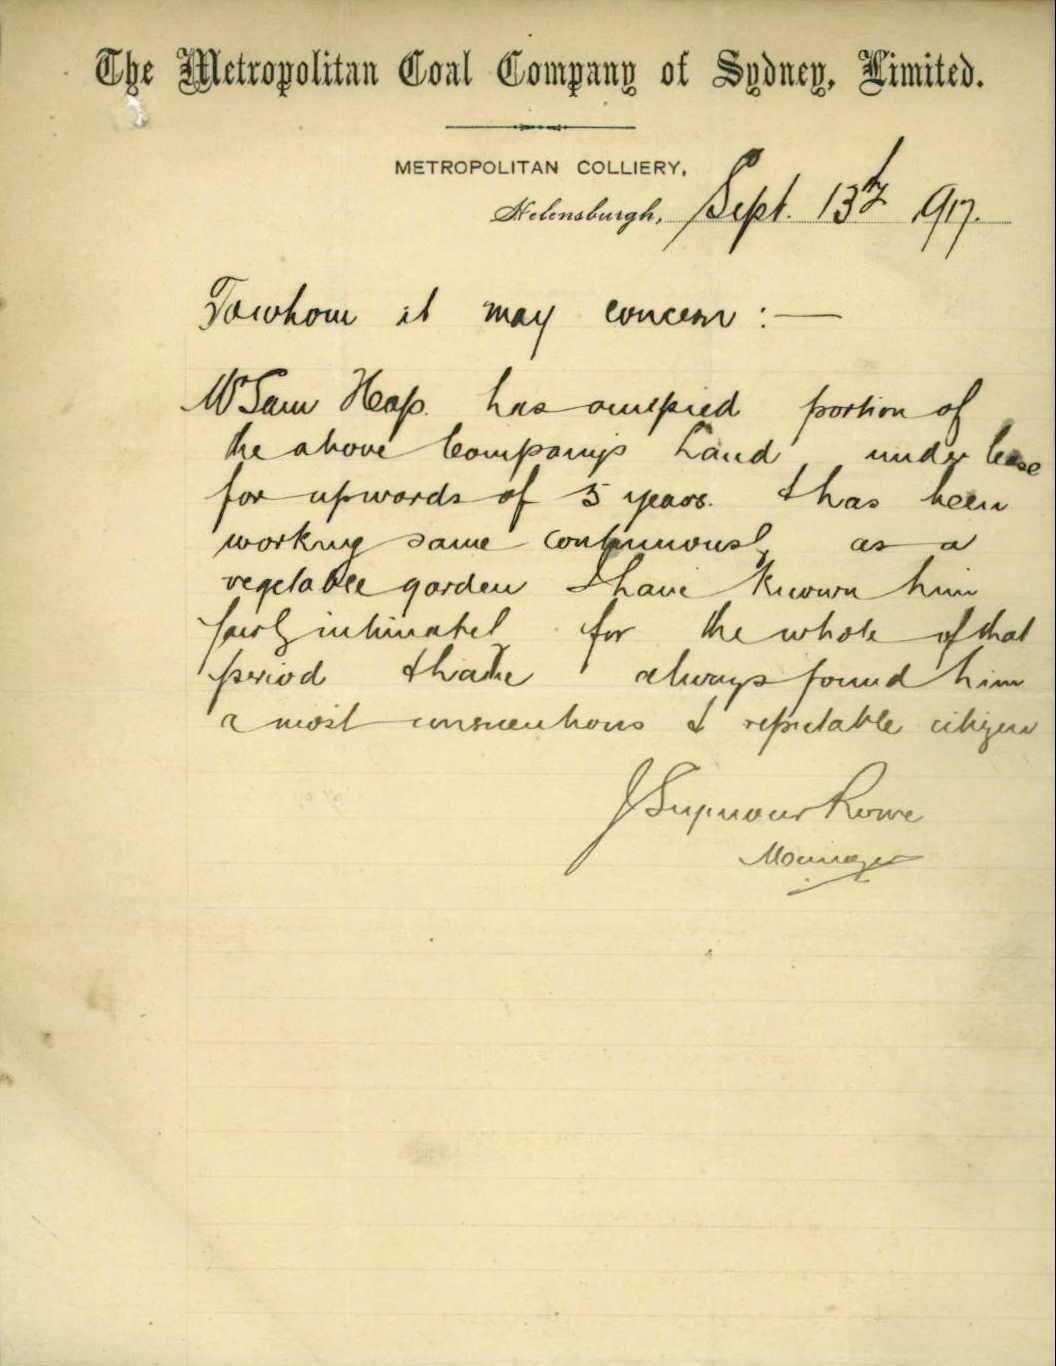 The Metropolitan Coal Company of Sydney, Limited.
METROPOLITAN COLLIERY,
Helensburgh, Sept. 13th 1917.
To whom it may concern :—
Mr Sam Heap. has occupied portion of
the above Company's Land under lease
for upwards of 5 years. & has been
working same continuously as a
vegetable garden I have known him
fairly intimately for the whole of that
period & have always found him
a most conscientious & reputable citizen
J Seymour Rowe
Manager